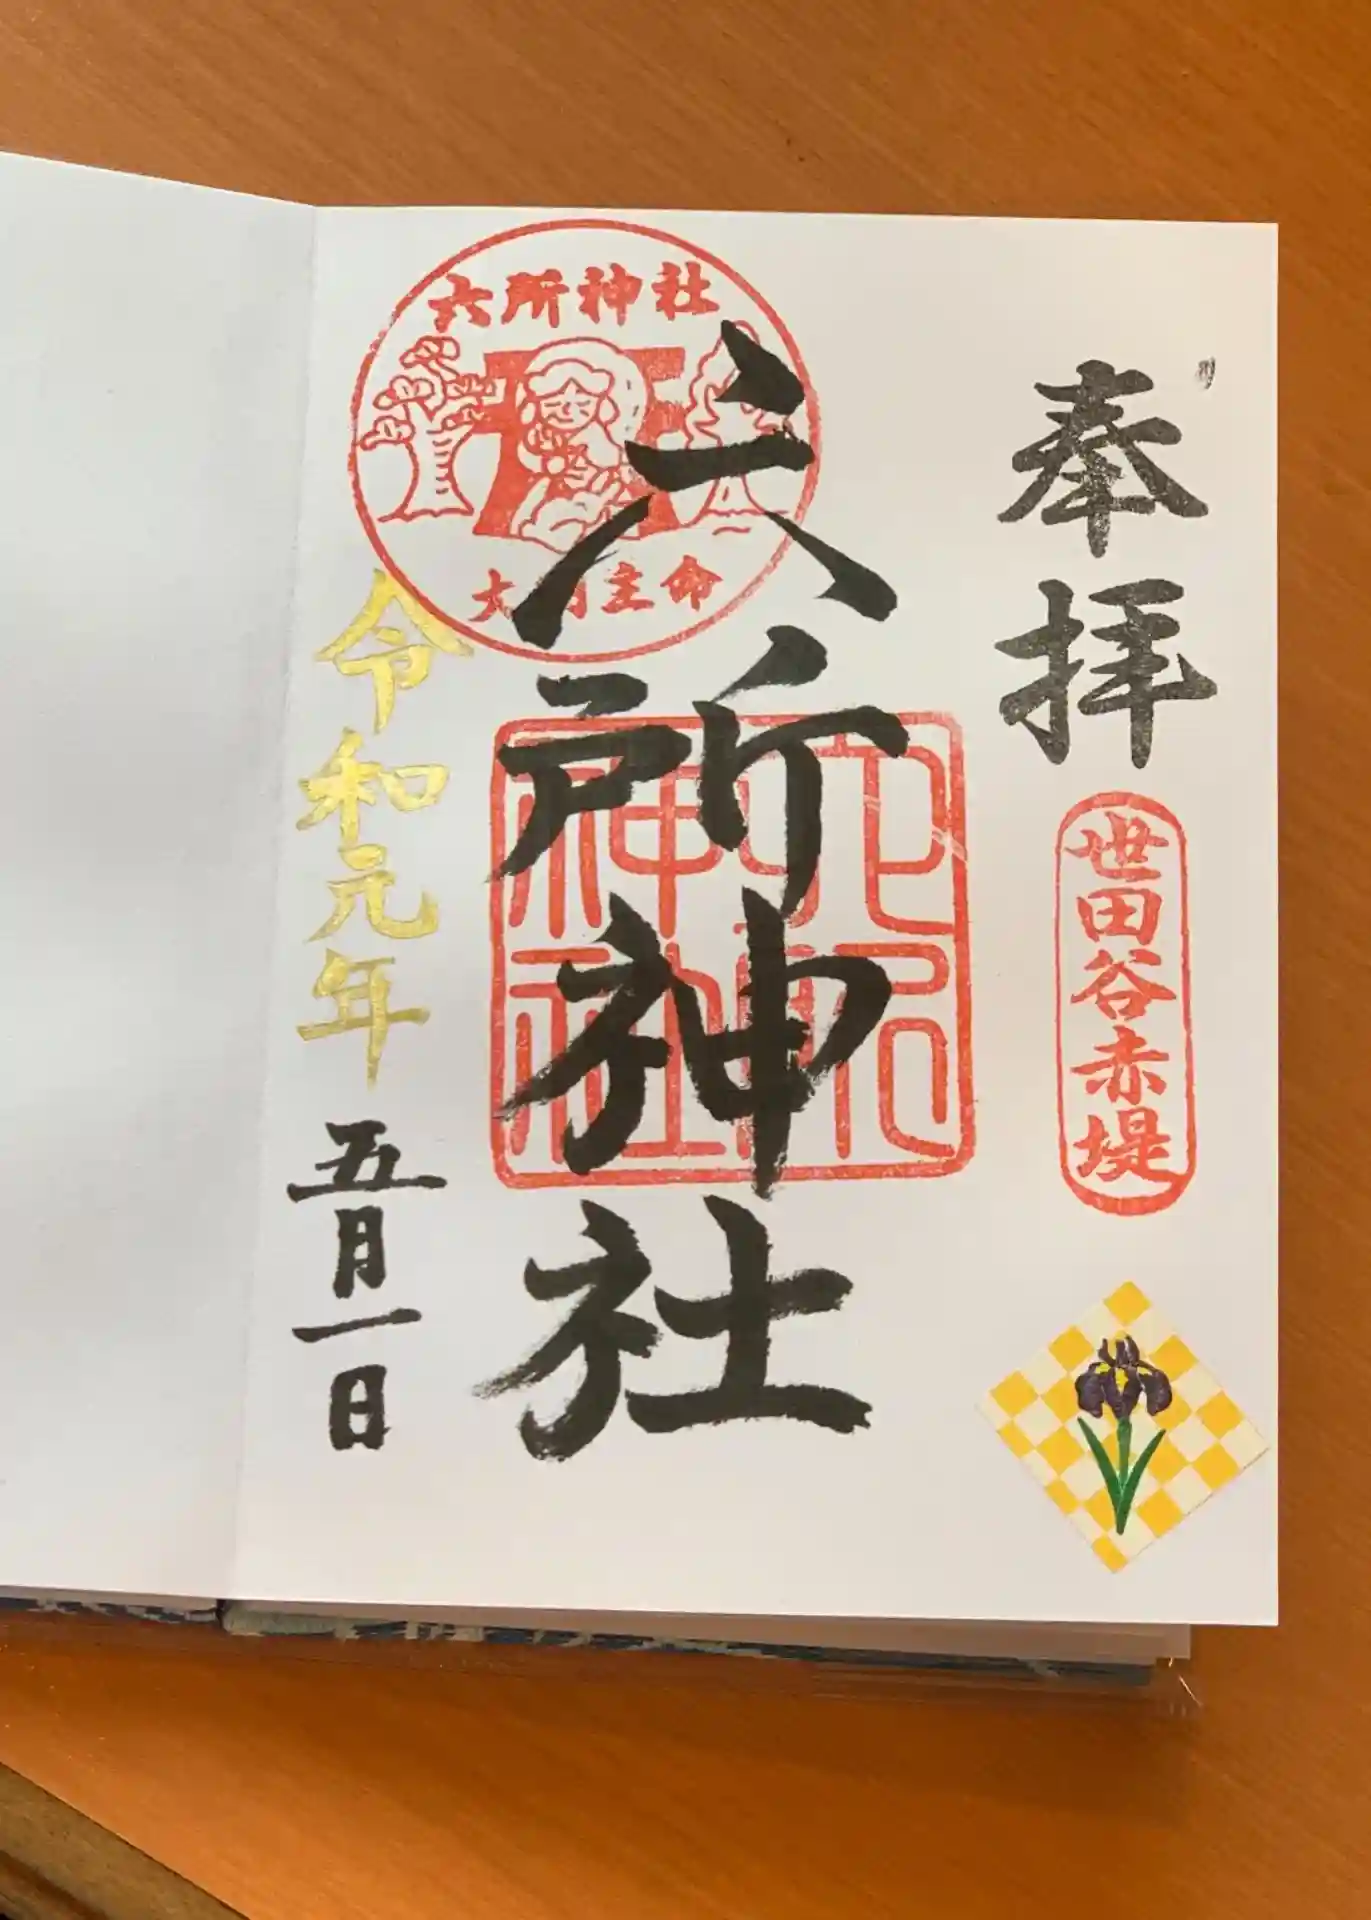 奉拝
世田谷赤堤
六所神社
六所神社
大国主命
六所神社
令和元年五月一日